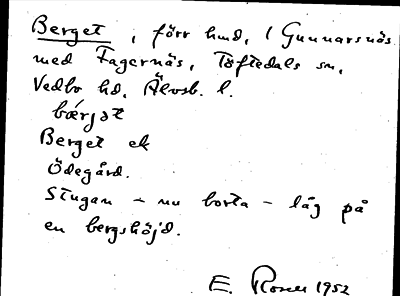 Berget, förr hmd, i Gunnarsnäs
med Fagernäs, Töftedals sn,
Vedbo hd, Älvsb. l.
bærjət
Berget ek
Ödegård.
Stugan – nu borta – låg på
en bergshöjd.
E. Rosen 1952